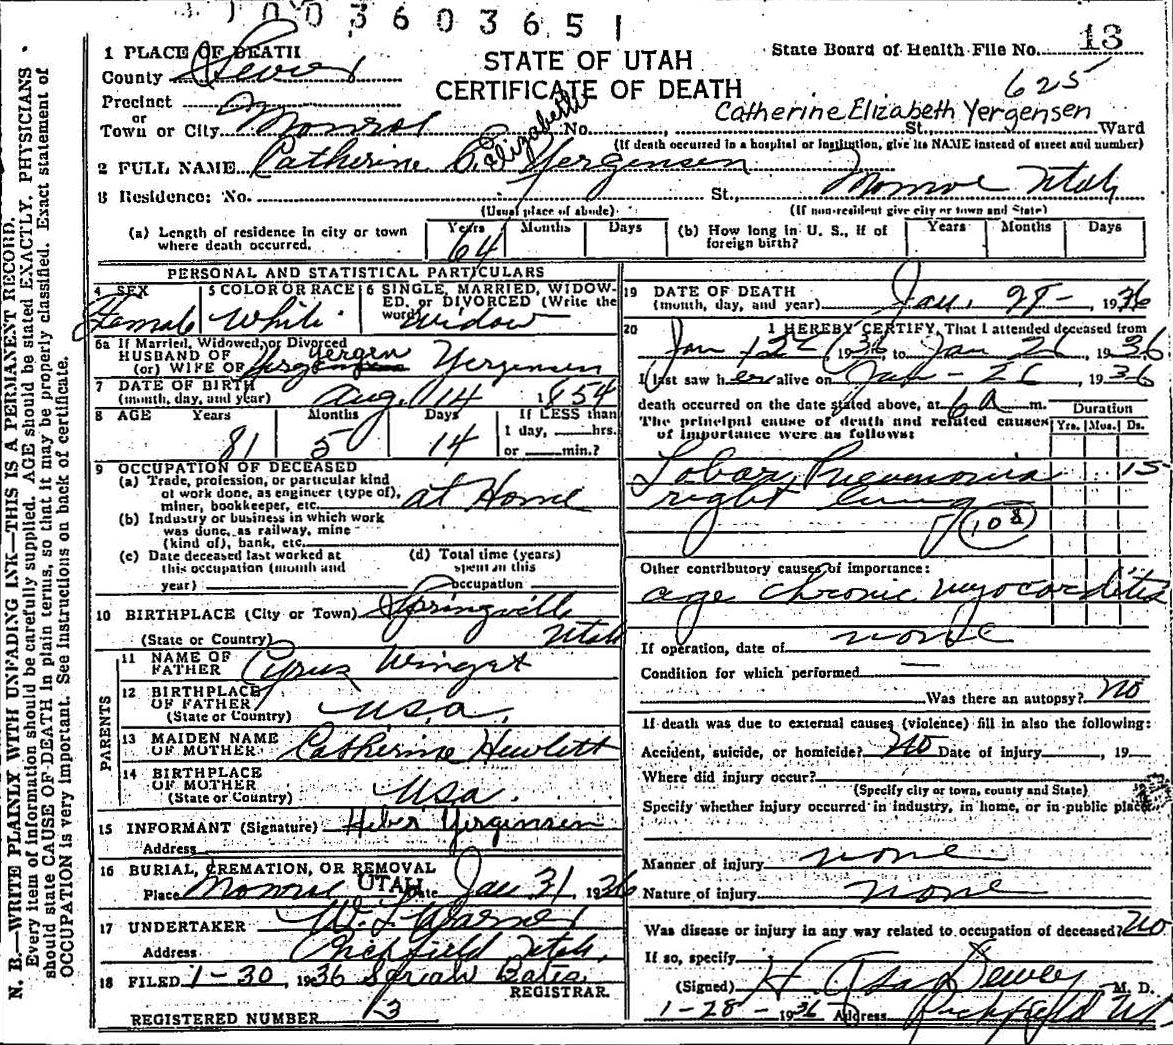 1003603651
STATE OF UTAH
CERTIFICATE OF DEATH
State Board of Health File No. 13
625
1 PLACE OF DEATH
County Sevier
Precinct
or
Town or City Monroe No. Catherine Elizabeth Yergensen St., Ward
(If death occurred in a hospital or institution, give its NAME instead of street and number)
2 FULL NAME Catherine Elizabeth Yergensen
3 Residence: No. St., Monroe Utah
(Usual place of abode) (If non-resident give city or town and State)
(a) Length of residence in city or town where death occurred. Years 64 Months Days (b) How long in U. S., if of foreign birth? Years Months Days
PERSONAL AND STATISTICAL PARTICULARS
4 SEX Female
5 COLOR OR RACE White
6 SINGLE, MARRIED, WIDOWED, or DIVORCED (Write the word) Widow
6a If Married, Widowed, or Divorced
HUSBAND OF
(or) WIFE OF Yergen Yergensen
7 DATE OF BIRTH
(month, day, and year) Aug 14 1854
8 AGE Years 81 Months 5 Days 14 If LESS than 1 day, hrs. or min.?
9 OCCUPATION OF DECEASED
(a) Trade, profession, or particular kind
of work done, as engineer (type of),
miner, bookkeeper, etc. at Home
(b) Industry or business in which work
was done, as railway, mine
(kind of), bank, etc.
(c) Date deceased last worked at this occupation (month and year)
(d) Total time (years) spent in this occupation
10 BIRTHPLACE (City or Town) Springville
(State or Country) Utah
PARENTS
11 NAME OF
FATHER Cyrus Winget
12 BIRTHPLACE
OF FATHER
(State or Country) U.S.A.
13 MAIDEN NAME
OF MOTHER Catherine Hewlett
14 BIRTHPLACE
OF MOTHER
(State or Country) USA.
15 INFORMANT (Signature) Heber Yergensen
Address
16 BURIAL, CREMATION, OR REMOVAL
Place Monroe UTAH Date Jan 31 1936
17 UNDERTAKER W. L. Warner
Address Richfield Utah
18 FILED 1-30 1936 Sariah Bates
REGISTRAR.
REGISTERED NUMBER 13
19 DATE OF DEATH
(month, day, and year) Jan. 28 - 1936
20 I HEREBY CERTIFY, That I attended deceased from
Jan 12 1936 to Jan 26, 1936
I last saw her alive on Jan - 26, 1936
death occurred on the date stated above, at 6 A m.
The principal cause of death and related causes
of importance were as follows:
Duration
Yrs. Mos. Ds.
Lobar Pneumonia 15
right lung
108
Other contributory causes of importance:
age chronic myocarditis
If operation, date of none
Condition for which performed
Was there an autopsy? No
If death was due to external causes (violence) fill in also the following:
Accident, suicide, or homicide? No Date of injury , 19
Where did injury occur?
(Specify city or town, county and State)
Specify whether injury occurred in industry, in home, or in public place
Manner of injury none
Nature of injury none
Was disease or injury in any way related to occupation of deceased? No
If so, specify
(Signed) H. Asa Dewey M. D.
1-28-1936 Address Richfield Ut
N. B.—WRITE PLAINLY WITH UNFADING INK—THIS IS A PERMANENT RECORD.
Every item of information should be carefully supplied. AGE should be stated EXACTLY. PHYSICIANS
should state CAUSE OF DEATH in plain terms, so that it may be properly classified. Exact statement of
OCCUPATION is very important. See instructions on back of certificate.